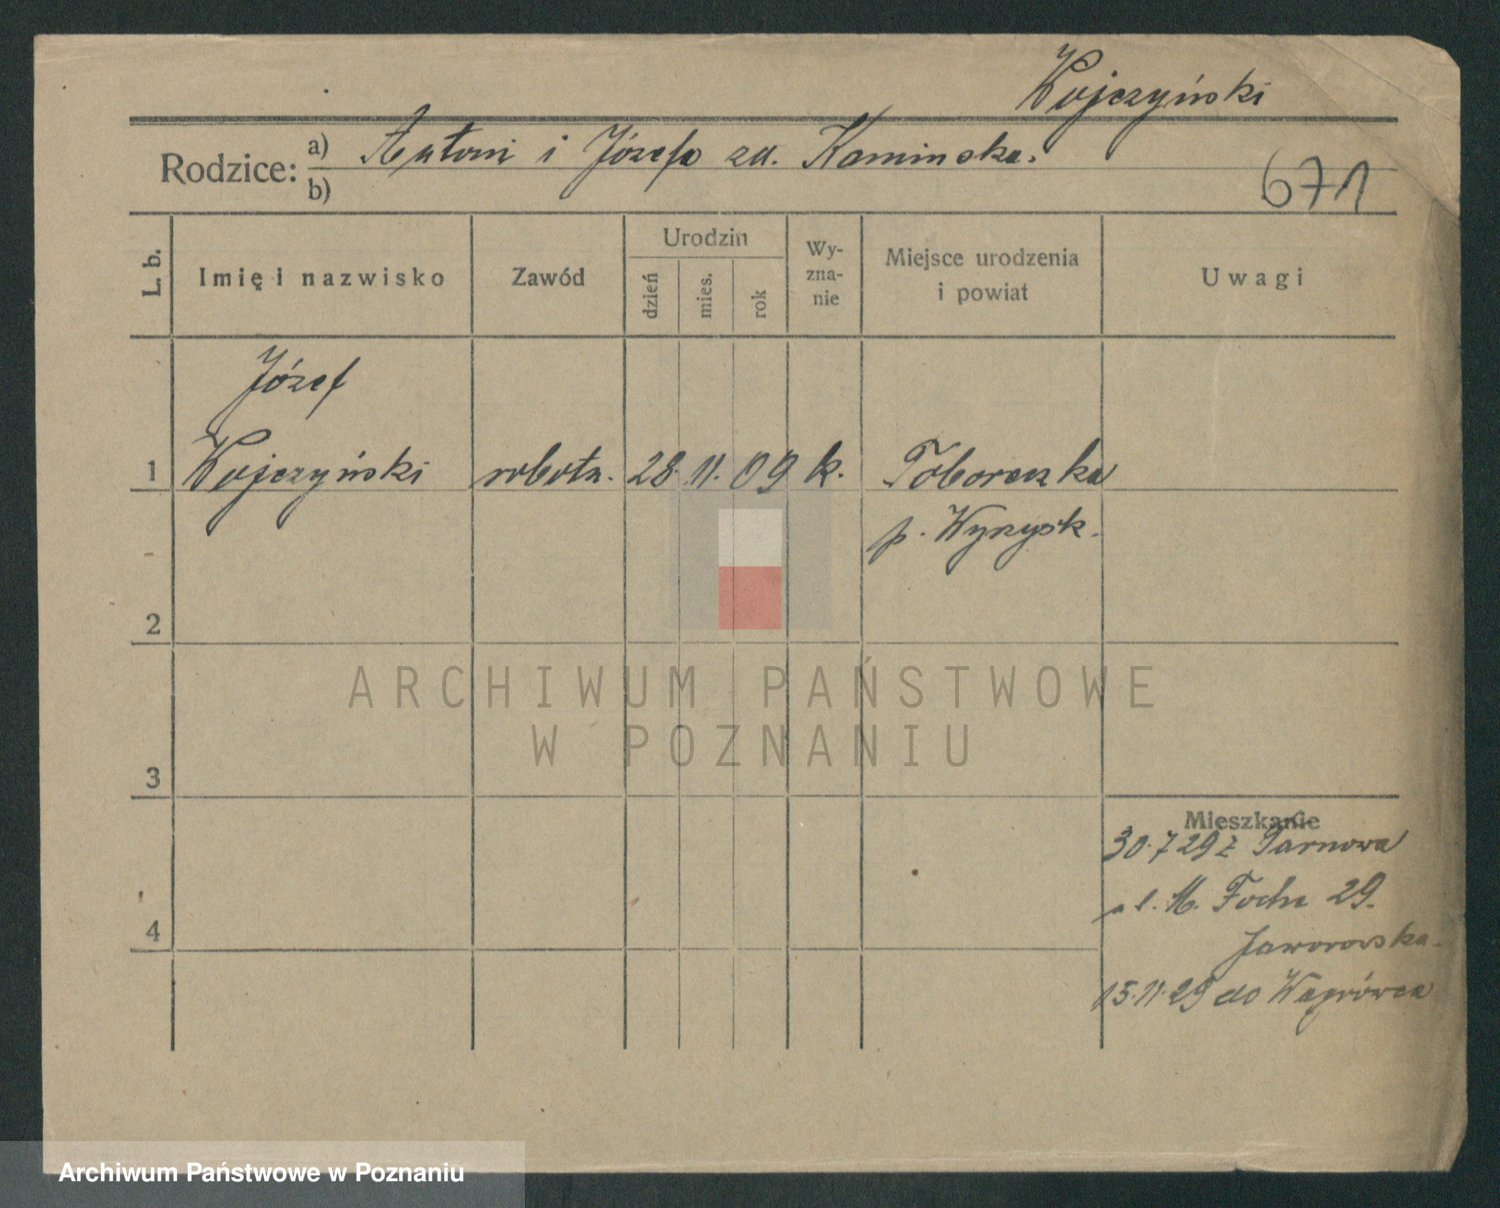 Kujczyński
Rodzice: a) Antoni i Józefa zd. Kaminska.
b)
671
L. b.
Imię i nazwisko
Zawód
Urodzin
dzień
mies.
rok
Wy-
zna-
nie
Miejsce urodzenia
i powiat
Uwagi
Józef
1 Kujczyński robotn. 28. 11. 09 k.
p. Wyrzysk.
2
ARCHIWUM PAŃSTWOWE
W POZNANIU
3
Mieszkanie
30.7 29 z Tarnowa
ul. M. Focha 29.
4
Jaworowska.
15.11.29 do Wągrówca
Archiwum Państwowe w Poznaniu